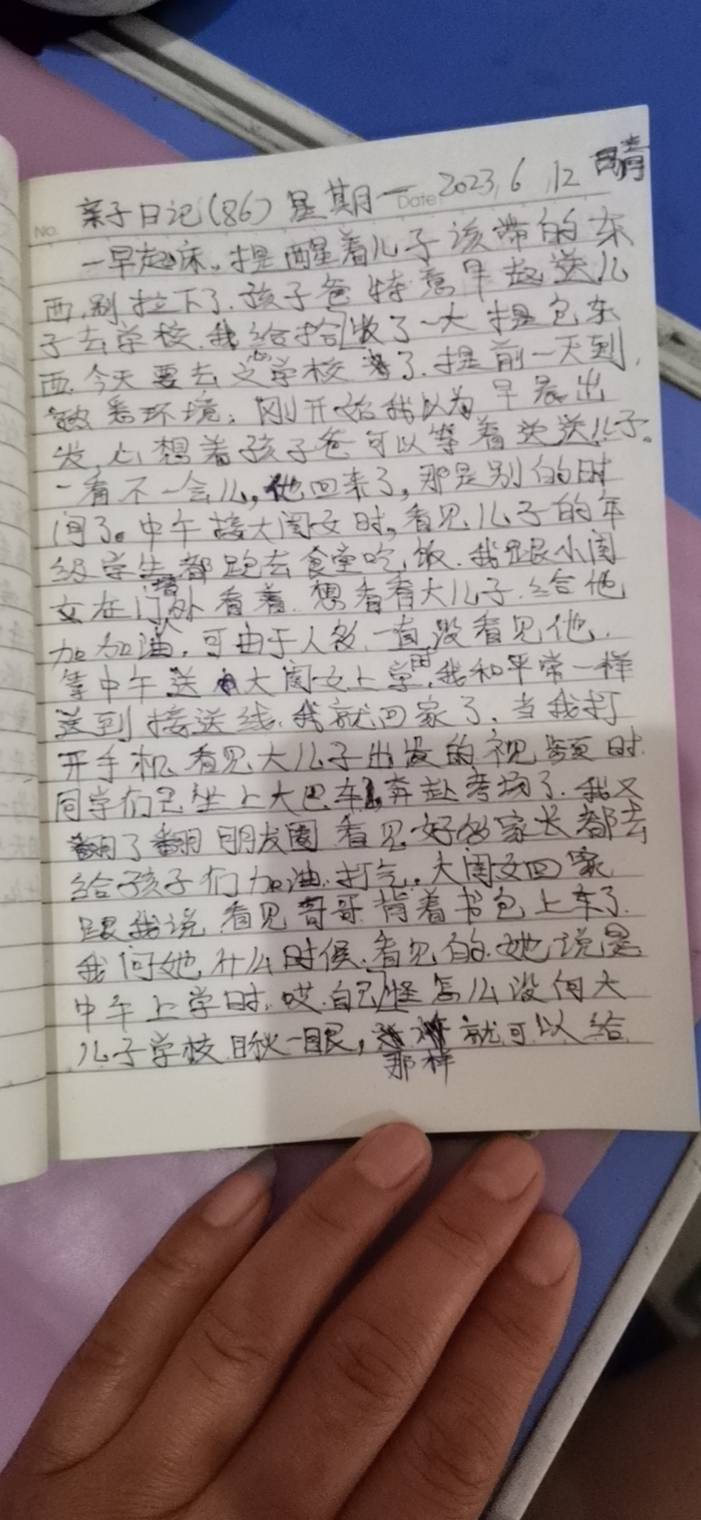 No. 亲子日记(86) 星期一 Date 2023,6,12 晴
一早起床。提醒着儿子该带的东
西,别拉下了.孩子爸特意早起送儿
子去学校,我给拾收了一大提包东
西,今天要去 学校 了.提前一天到,
熟悉环境,刚开始我以为早晨出
发,心想着孩子爸可以等着送送儿子。
一看不一会儿,他回来了,那是别的时
间了。中午接大闺女时,看见儿子的年
级学生都跑去食堂吃,饭.我跟小闺
女在门外看着.想看看大儿子.给他
加加油,可由于人多,一直没看见他.
等中午送大闺女上学,我和平常一样
送到接送线.我就回家了.当我打
开手机看见大儿子出发的视频时.
同学们已坐上大巴车,奔赴考场了.我又
翻了翻朋友圈看见好多家长都去
给孩子们加油.打气。大闺女回家
跟我说看见哥哥背着书包上车了.
我问她什么时候.看见的.她说是
中午上学时.哎.自己怪怎么没向大
儿子学校瞅一眼,那样就可以给